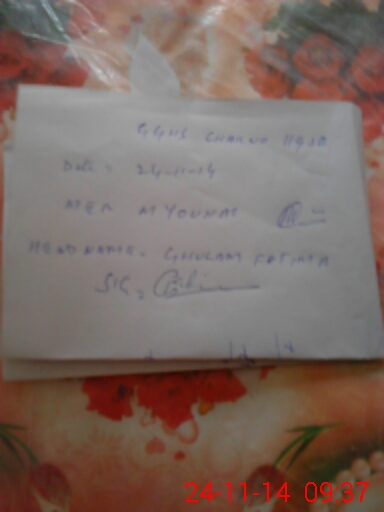 GGHS CHAKNO 119JB
Date = 24-11-14
MEA M YOUNAS
HEAD NAME. GHULAM FATIMA
SIG =
24-11-14 09:37